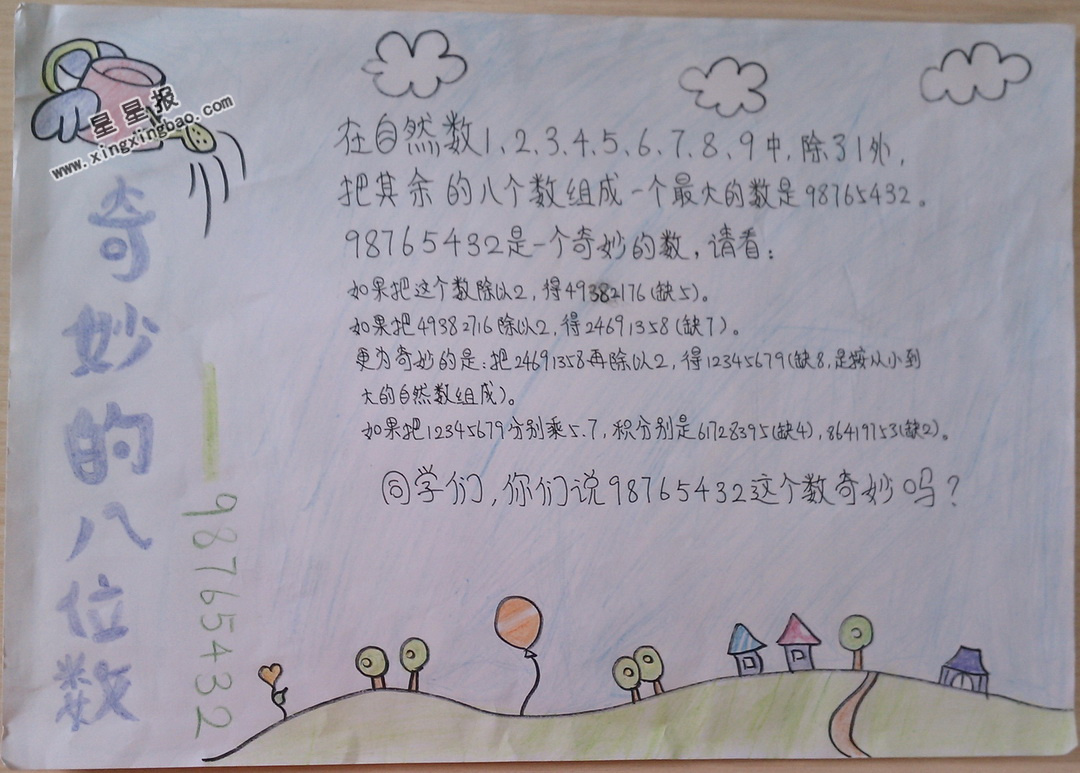 星星报
www.xingxingbao.com
奇妙的八位数
—98765432
在自然数1、2、3、4、5、6、7、8、9中,除了1外,
把其余的八个数组成一个最大的数是98765432。
98765432是一个奇妙的数,请看:
如果把这个数除以2,得49382176(缺5)。
如果把49382716除以2,得24691358(缺7)。
更为奇妙的是:把24691358再除以2,得12345679(缺8,是按从小到
大的自然数组成)。
如果把12345679分别乘5.7,积分别是61728395(缺4),86419753(缺2)。
同学们,你们说98765432这个数奇妙吗?